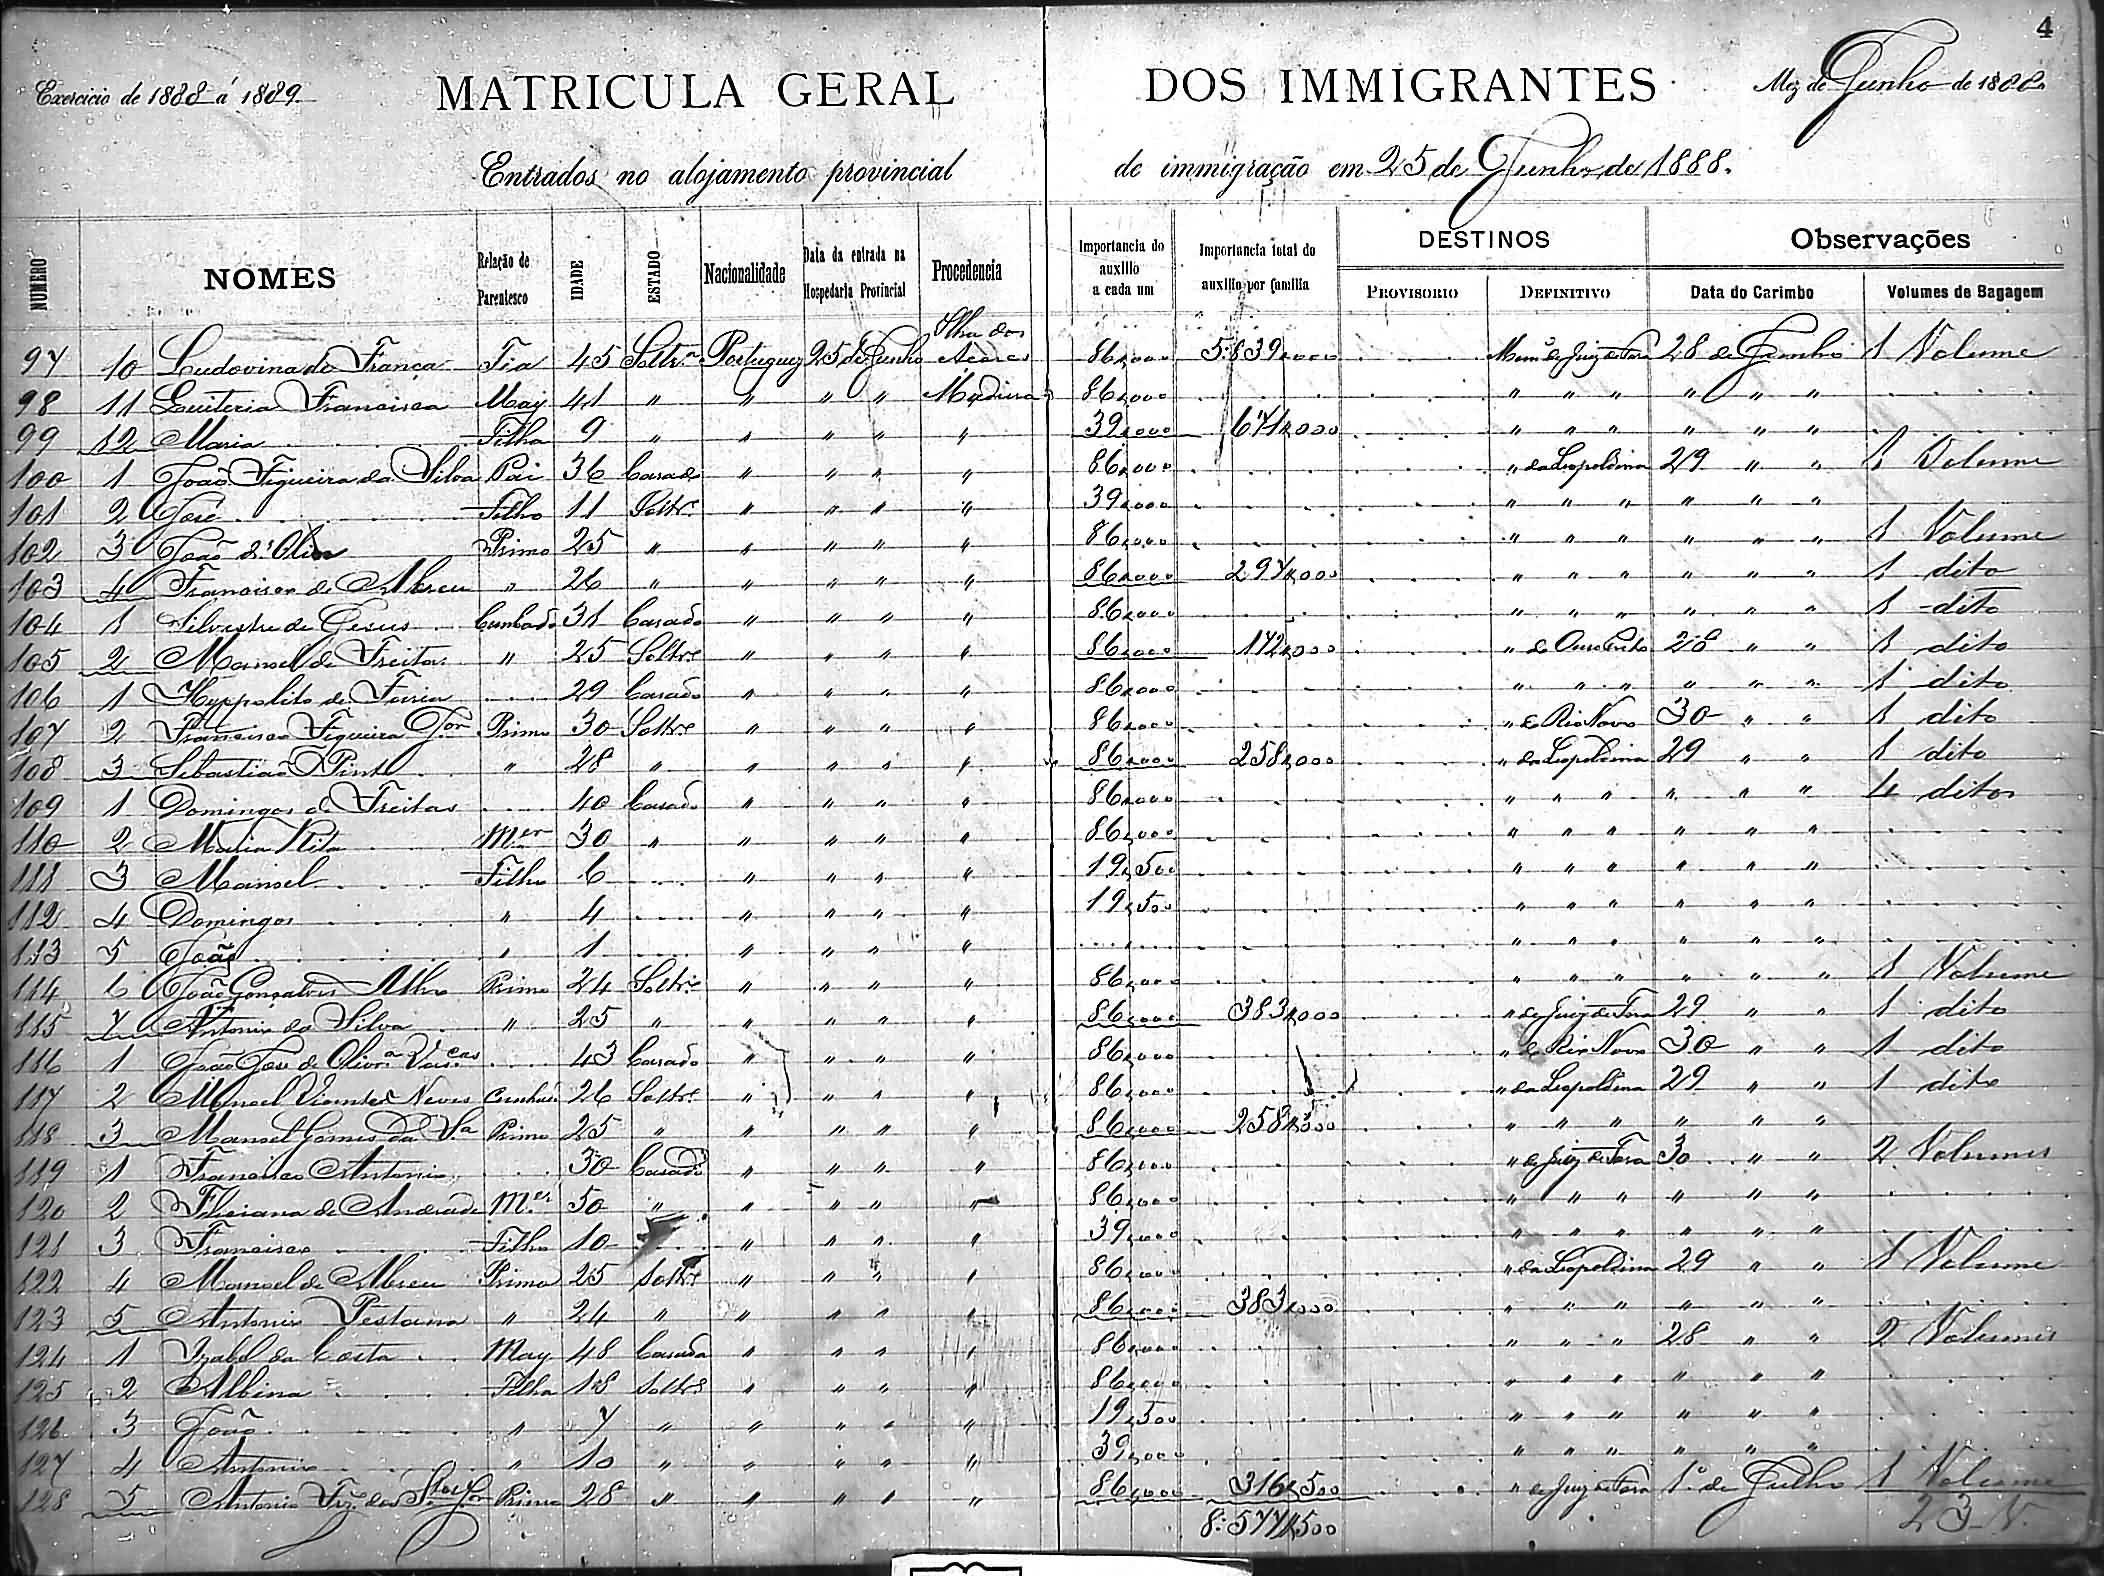 4
Exercicio de 1888 á 1889. MATRICULA GERAL DOS IMMIGRANTES Mez de Junho de 1888
Entrados no alojamento provincial de immigração em 25 de Junho de 1888.
NUMERO NOMES Relação de Parentesco IDADE ESTADO Nacionalidade Data da entrada na Hospedaria Provincial Procedencia Importancia do auxilio a cada um Importancia total do auxilio por familia DESTINOS PROVISORIO DEFINITIVO Observações Data do Carimbo Volumes de Bagagem
97 10 Ludovina de França Tia 45 Soltrª Portuguez 25 de Junho Ilha dos Açores 86,000 5:839,000 Juiz de Fora 28 de Junho 1 Volume
98 11 Quiteria Francisca May 41 " " " " Madeira 86,000 " " " " " "
99 12 Maria Filha 9 " " " " " 39,000 671,000 " " " " " "
100 1 João Figueira da Silva Pai 36 Casado " " " " 86,000 " da Leopoldina 29 " " 1 Volume
101 2 José Filho 11 Soltrº " " " " 39,000 " " " " " "
102 3 João d' Primo 25 " " " " " 86,000 " " " " " " 1 Volume
103 4 Francisco de Abreu " 26 " " " " " 86,000 297,000 " " " " " " 1 dito
104 1 Silvestre de Jesus Cunhado 31 Casado " " " " 86,000 " " " " " " 1 dito
105 2 Manoel de Freitas " 25 Soltrº " " " " 86,000 172,000 " de Ouro Preto 28 " " 1 dito
106 1 Hyppolito de Faria 29 Casado " " " " 86,000 " " " " " " 1 dito
107 2 Francisco Figueira Jor Primo 30 Soltrº " " " " 86,000 " de Rio Novo 30 " " 1 dito
108 3 Sebastião Pinto " 28 " " " " " 86,000 258,000 " da Leopoldina 29 " " 1 dito
109 1 Domingos de Freitas 40 Casado " " " " 86,000 " " " " " " 4 ditos
110 2 Maria Rita Mer 30 " " " " " 86,000 " " " " " "
111 3 Manoel Filho 6 " " " " 19,500 " " " " " "
112 4 Domingos " 4 " " " " 19,500 " " " " " "
113 5 João " 1 " " " " " " " " " "
114 6 João Gonsalves Primo 24 Soltrº " " " " 86,000 " " " " " " 1 Volume
115 7 Antonio da Silva " 25 " " " " " 86,000 383,000 " de Juiz de Fora 29 " " 1 dito
116 1 João José de Olivrª Vascos 43 Casado " " " " 86,000 " de Rio Novo 30 " " 1 dito
117 2 Manoel Neves Cunhado 26 Soltrº " " " " 86,000 " da Leopoldina 29 " " 1 dito
118 3 Manoel Gomes da Sa Primo 25 " " " " " 86,000 258,000 " " " " " "
119 1 Francisco Antonio 30 Casado " " " " 86,000 " de Juiz de Fora 30 " " 2 Volumes
120 2 Feliciana de Andrade Mer 50 " " " " " 86,000 " " " " " "
121 3 Francisco Filho 10 " " " " 39,000 " " " " " "
122 4 Manoel de Abreu Primo 25 Soltrº " " " " 86,000 " da Leopoldina 29 " " 1 Volume
123 5 Antonio Pestana " 24 " " " " " 86,000 383,000 " " " " " "
124 1 Izabel da Costa May 48 Casada " " " " 86,000 " " " 28 " " 2 Volumes
125 2 Albina Filha 18 Soltrª " " " " 86,000 " " " " " "
126 3 João " 7 " " " " " 19,500 " " " " " "
127 4 Antonio " 10 " " " " " 39,000 " " " " " "
128 5 Antonio Frz dos Stos Jor Primo 28 " " " " " 86,000 316,500 " de Juiz de Fora 1º de Julho 1 Volume
8:577,500 23 V.